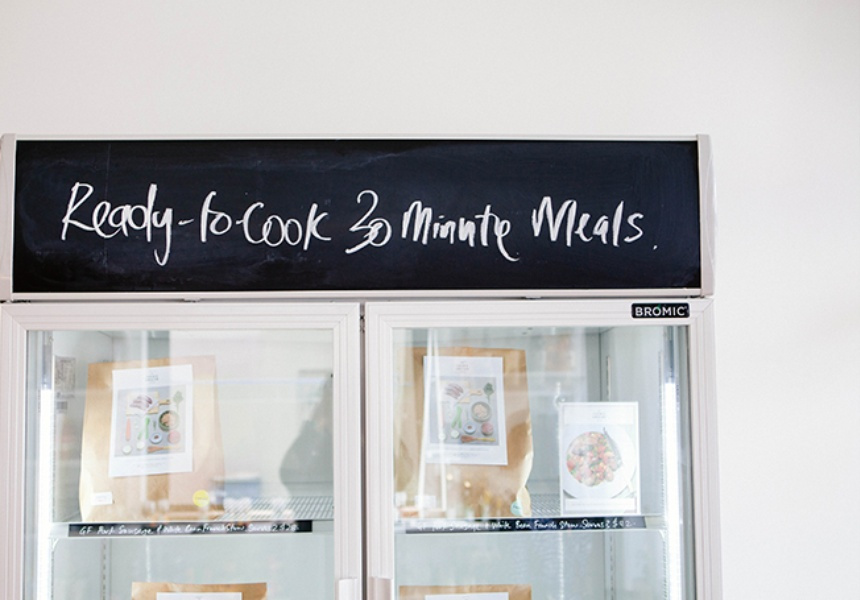 Ready-to-Cook 30 Minute Meals.
BROMIC
GF Pork Sausage & White Bean French Stew Serves 2 $
Pork Sausage & White Bean French Stew Serves 2 $